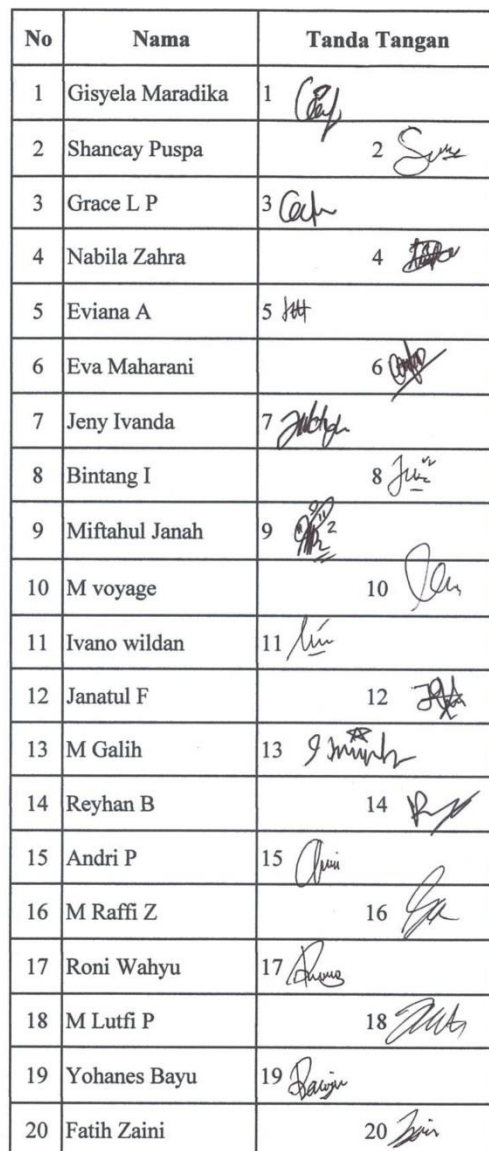 No Nama Tanda Tangan
1 Gisyela Maradika 1
2 Shancay Puspa 2
3 Grace L P 3
4 Nabila Zahra 4
5 Eviana A 5
6 Eva Maharani 6
7 Jeny Ivanda 7
8 Bintang I 8
9 Miftahul Janah 9
10 M voyage 10
11 Ivano wildan 11
12 Janatul F 12
13 M Galih 13
14 Reyhan B 14
15 Andri P 15
16 M Raffi Z 16
17 Roni Wahyu 17
18 M Lutfi P 18
19 Yohanes Bayu 19
20 Fatih Zaini 20